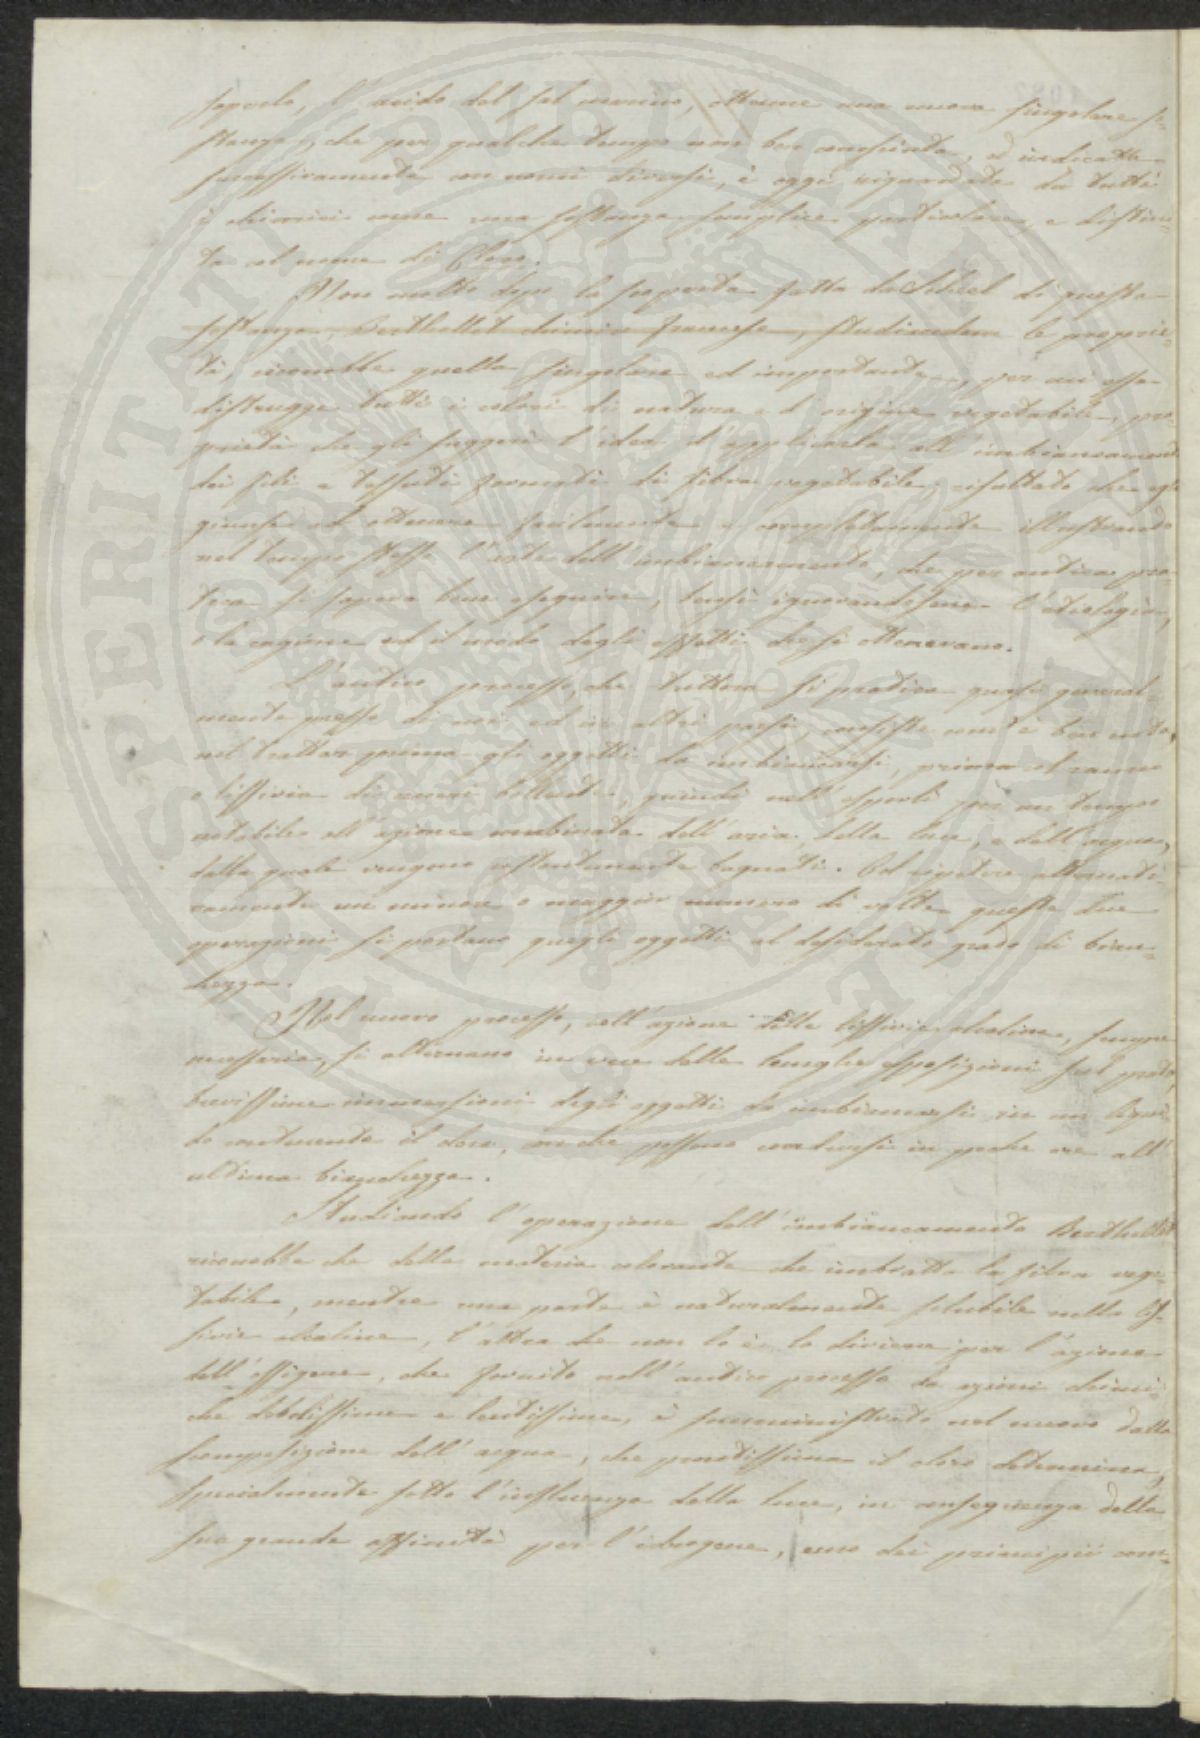 saperlo, l'acido del sal marino, ottenne una nuova singolare so-
stanza, che per qualche tempo non ben conosciuta, ed indicata
successivamente con nomi diversi, è oggi riguardata da tutti
i chimici come una sostanza semplice particolare, e distin-
ta col nome di Cloro.
Non molto dopo la scoperta fatta da Scheel di questa
sostanza, Berthollet chimico francese, studiandone le proprie-
tà, riconobbe quella singolare ed importante, per cui essa
distrugge tutti i colori di natura e d'origine vegetabile, pro-
prietà che gli suggerì l'idea d'applicarla all'imbiancamento
dei fili e tessuti formati di fibra vegetabile, resultato che egli
giunse ad ottenere facilmente e completamente illustrando
nel tempo stesso l'arte dell'imbiancamento, che per antica pra-
tica si sapeva bene eseguire, bensì ignorandosene l'etiologia,
o la cagione ed il modo degli effetti che si ottenevano.
L'antico processo, che tuttora si pratica quasi general-
mente presso di noi ed in altri paesi, consiste com'è ben noto,
nel trattar prima gli oggetti da imbiancarsi, prima col ranno
o lissivia di ceneri bollente, quindi nell'esporli per un tempo
notabile all'azione combinata dell'aria, della luce, e dell'acqua,
della quale vengono costantemente bagnati. Col ripetere alternati-
vamente un minore o maggior numero di volte queste due
operazioni si portano quegli oggetti al desiderato grado di bian-
chezza.
Nel nuovo processo, coll'azione delle lissivie alcaline, sempre
necessaria, si alternano in vece delle lunghe esposizioni sul prato,
brevissime immersioni degli oggetti da imbiancarsi in un liqui-
do contenente il cloro, onde possono condursi in poche ore all'
ultima bianchezza.
Studiando l'operazione dell'imbiancamento Berthollet
riconobbe che della materia colorante che imbratta la fibra vege-
tabile, mentre una parte è naturalmente solubile nelle lis-
sivie alcaline, l'altra che non lo è, lo diviene per l'azione
dell'ossigene, che fornito nell'antico processo da azioni chimi-
che debolissime e lentissime, è somministrato nel nuovo dalla
scomposizione dell'acqua, che prontissima il cloro determina,
specialmente sotto l'influenza della luce, in conseguenza della
sua grande affinità per l'idrogene, uno dei principii com-